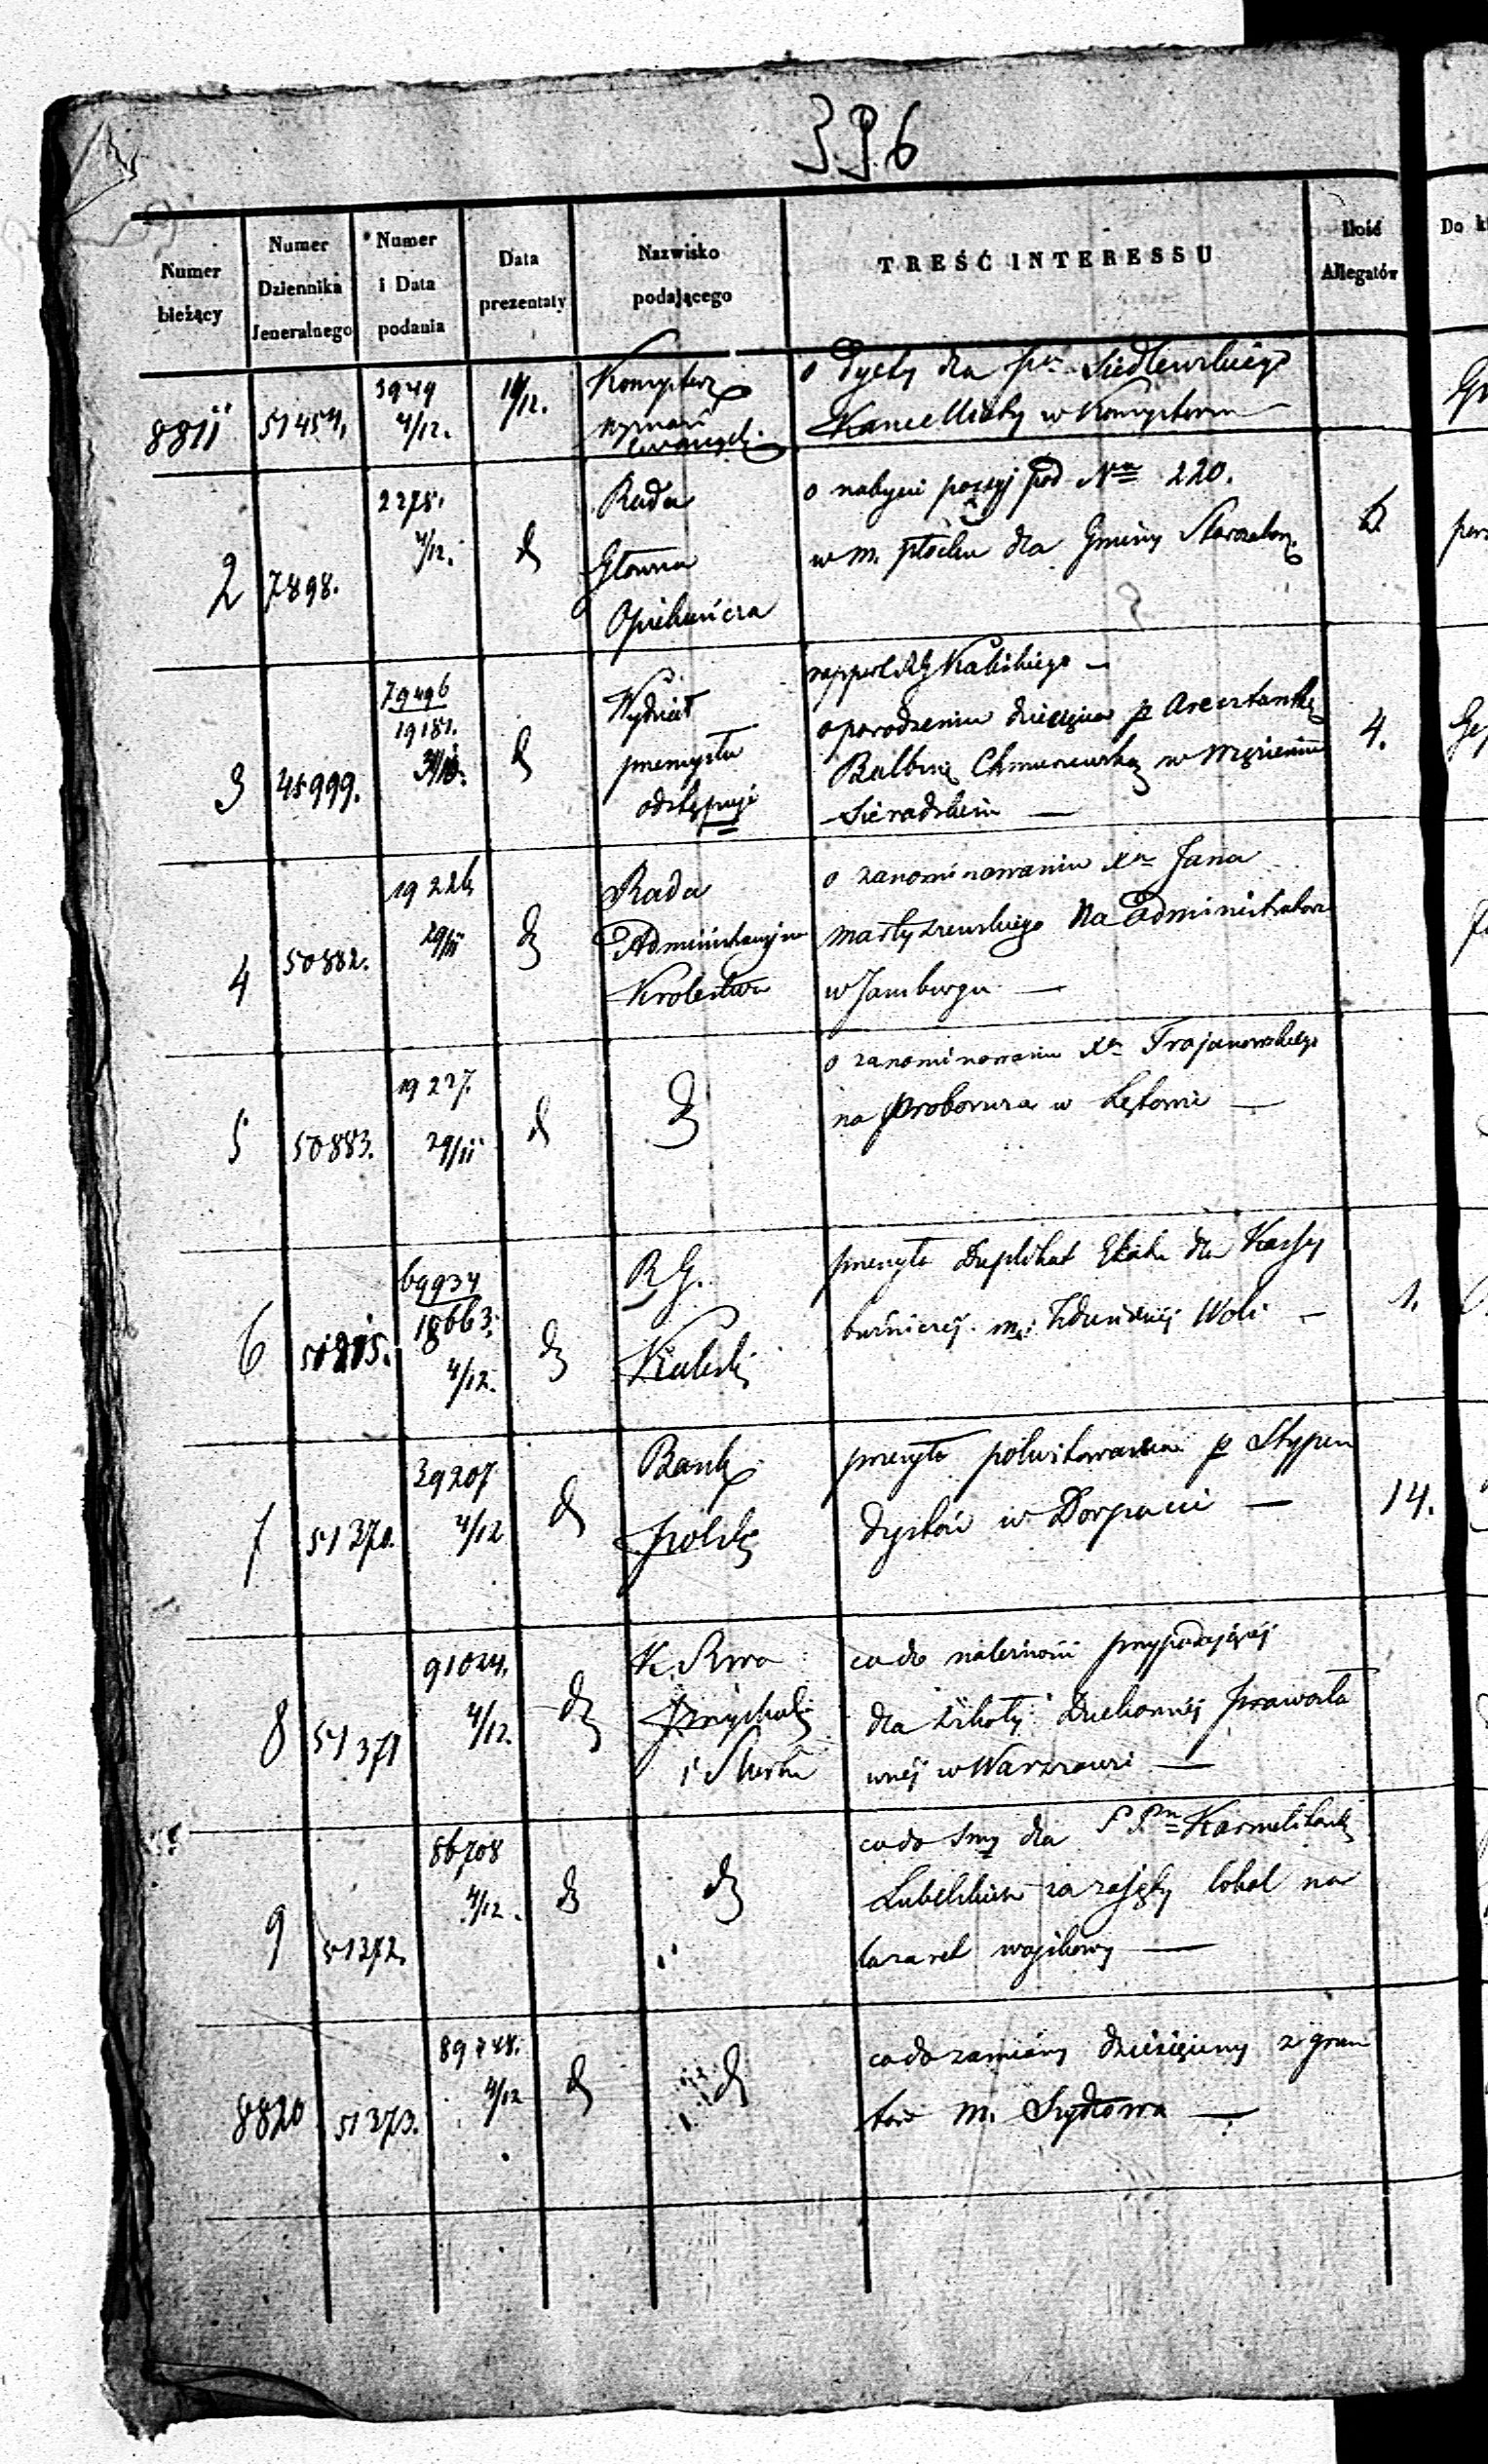 396
Numer bieżący
Numer Dziennika Jeneralnego
Numer i Data podania
Data prezentaty
Nazwisko podającego
TREŚĆ INTERESSU
Ilość Allegatów
Do
8811 51454. 3949 4/12.
o Dyety dla Siedlewskiego
w
2 7898. 2278. 4/12. d
Rada
Główna
Opiekuńcza
o nabyciu possyj pod Nrm 220.
w m. Płocku dla Gminy
3 45999. 79496 19181. d
Wydział
przemysłu
odstępuje
rapport RG Kaliskiego —
o porodzeniu dziecięcia p Aresztantkę
Balbinę w więzieniu
Sieradzkim —
4.
4 50882. 29/11 d
Rada
Administracyjna
Królestwa
o zanominowaniu Xa Jana
na Administratora
w Jamburgu —
5 50883. 19227. 29/11 d
d
o zanominowaniu Xa Trojanowskiego
na Proboszcza w Łętowie —
6 69934 18663. 4/12. d
R G.
Kaliski
przesyła Duplikat Etatu dla Kassy
bożniczej m. Zduńskiej Woli —
1.
7 51370. 39207 4/12 d
Bank
Polski
przesyła pokwitowanie p Stypen
dystów w Dorpacie —
14.
8 51371 91024. 4/12. d
K. R.
Przychodów
i Skarbu
co do należności przypadającej
dla szkoły Duchownej Prawosła
wnej w Warszawie —
9 51372. 86708 4/12. d
d
co do Smy dla PPn Karmelitanek
Lubelskich za zajęty lokal na
lazaret wojskowy —
8820 51373. 89748. 4/12 d
d
co do zamiany dziesięciny z grun
tów m. Szydłowa —